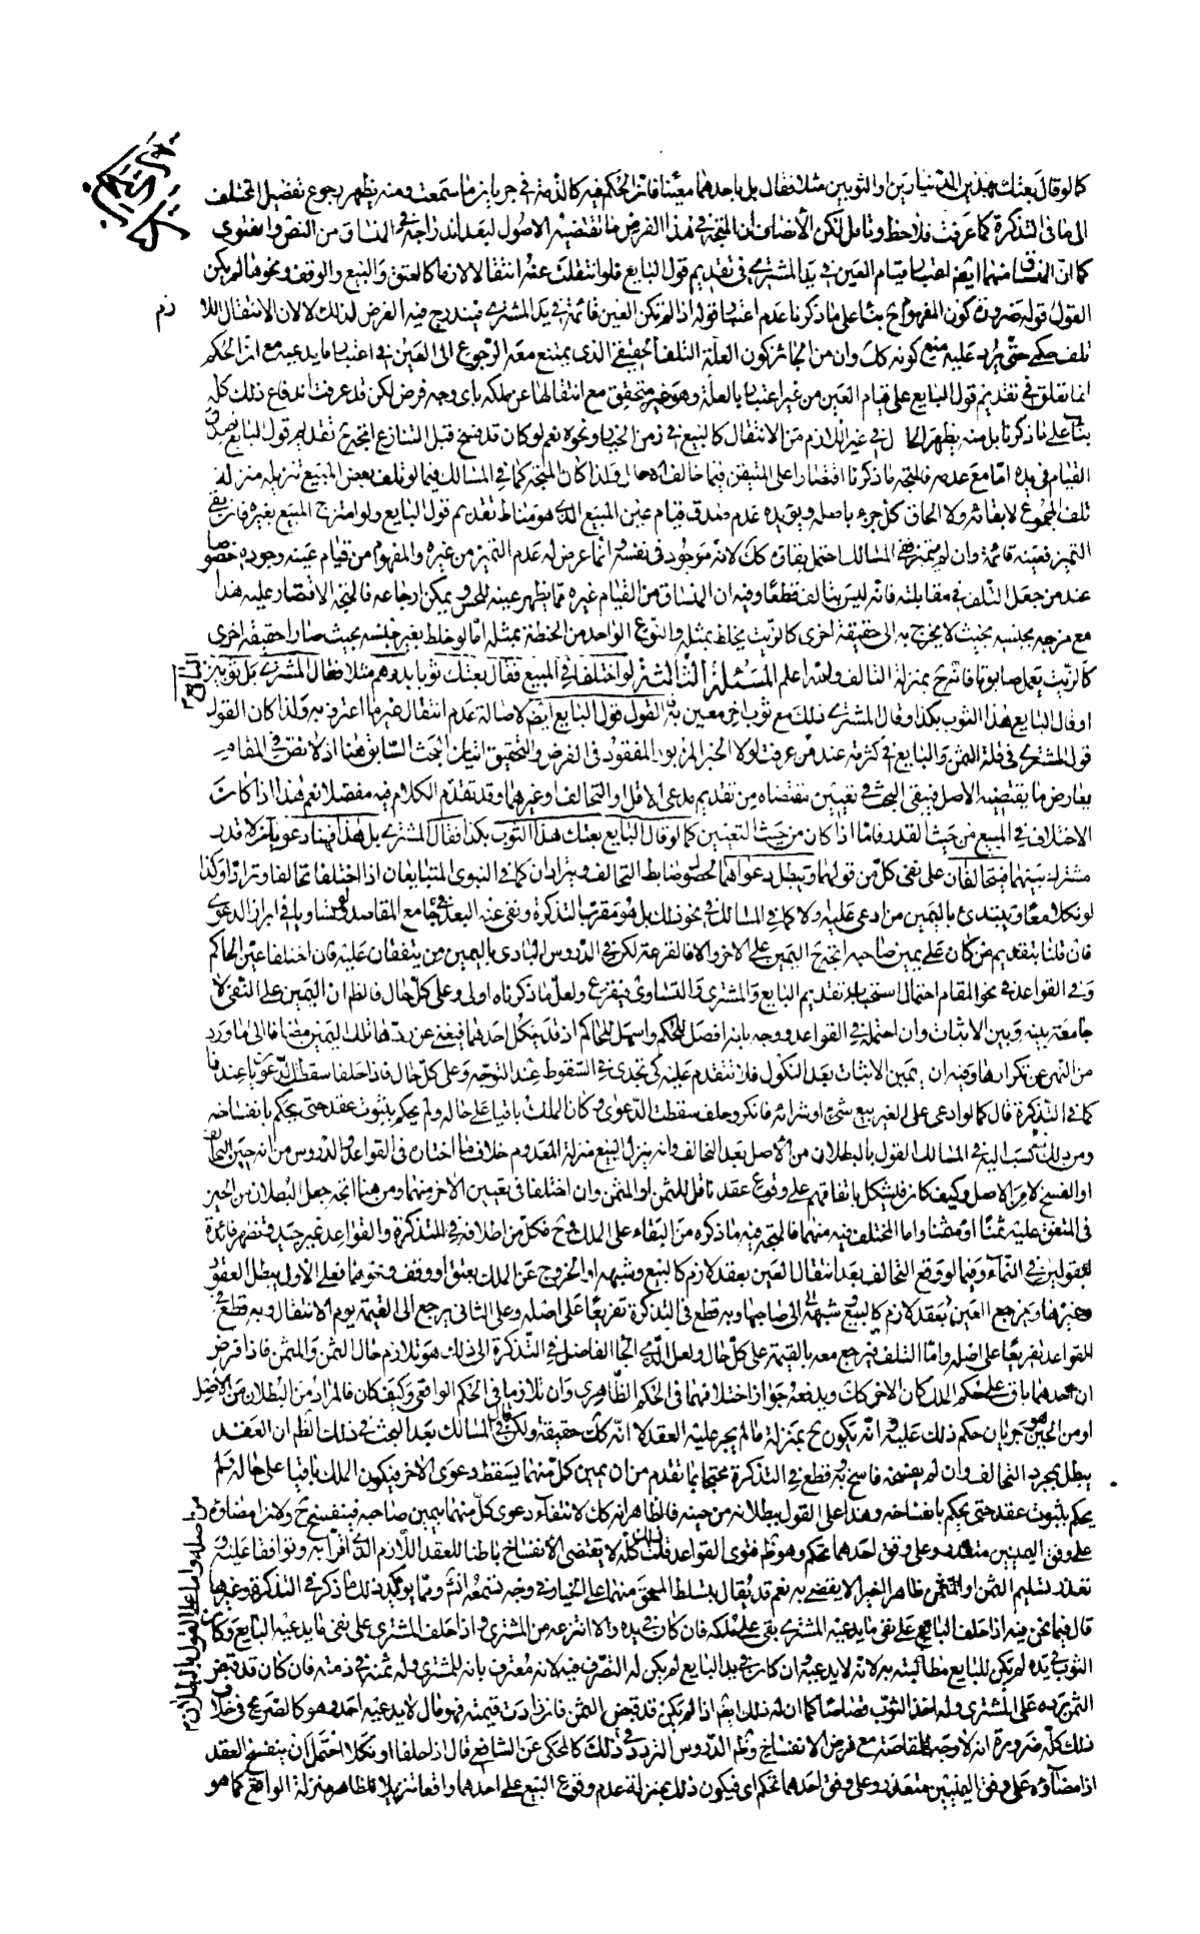 كما لو قال بعتك بهذين الدينارين او الثوبين مثلا فقال بل باحدهما معينا فان الحكم فيه كالذمة في جريان ما سمعت ومنه يظهر رجوع تفضيل المختلف
الى ما في التذكرة كما عرفت فلاحظ وتامل لكن الأنصاف ان المتجه في هذا الفرض ما تقتضيه الاصول لبعد اندراجه في المنساق من النص والفتوى
كما ان المنساق منهما ايضا اعتبار قيام العين في يد المشتري في تقديم قول البايع فلو انتقلت عنه انتقالا لازما كالعتق والبيع والوقف ونحوها لم يكن
القول قوله ضرورة كون المفهوم ح بناء على ما ذكرنا عدم اعتبار قوله اذا لم تكن العين قائمة في يد المشتري فيندرج فيه الفرض لذلك لا لان الانتقال اللا زم
تلف حكمي حتى يرد عليه منع كونه كك وان من الجائز كون العلة التلف الحقيقي الذي يمتنع معه الرجوع الى العين في اعتبار ما يدعيه مع ان الحكم
انما تعلق في تقديم قول البايع على قيام العين من غير اعتبار بالعلة وهو غير متحقق مع انتقالها عن ملكه باي وجه فرض لكن قد عرفت اندفاع ذلك كله
بناء على ما ذكرنا بل منه يظهر الحال في غير اللازم من الانتقال كالبيع في زمن الخيار ونحوه نعم لو كان قد فسخ قبل التنازع اتجه ح تقديم قول البايع لصدق
القيام في يده اما مع عدمه فالمتجه ما ذكرنا اقتصارا على المتيقن فيما خالف الاصل ولذا كان المتجه كما في المسالك فيما لو تلف بعض المبيع تنزيله منزلة
تلف المجموع لا بقائه ولا الحاق كل جزء باصله ويؤيده عدم صدق قيام عين المبيع الذي هو مناط تقديم قول البايع ولو امتزج المبيع بغيره فان بقي
التميز فعينه قائمة وان لم يتميز ففي المسالك احتمل بقاؤه كك لانه موجود في نفسه وانما عرض له عدم التميز من غيره والمفهوم من قيام عينه وجوده خصوصا
عند من جعل التلف في مقابلته فانه ليس بتالف قطعا وفيه ان المنساق من القيام غيره مما يظهر عينه للحس ويمكن ارجاعه فالمتجه الاقتصار عليه هذا
مع مزجه بجنسه بحيث لا يخرج به الى حقيقة اخرى كالزيت يخلط بمثله والنوع الواحد من الحنطة بمثله اما لو خلط بغير جنسه بحيث صارا حقيقة اخرى
كالزيت يعمل صابونا فانه ح بمنزلة التالف والله اعلم المسئلة الثالثة لو اختلفا في المبيع فقال بعتك ثوبا بدرهم مثلا فقال المشتري بل ثوبين
او قال البايع هذا الثوب بكذا وقال المشتري ذلك مع ثوب اخر معين به فالقول قول البايع ايضا لاصالة عدم انتقال غير ما اعترف به ولذا كان القول
قول المشتري في قلة الثمن والبايع في كثرته عند من عرفت لولا الخبر المزبور المفقود في الفرض والتحقيق اتيان البحث السابق هنا اذ لا نص في المقام
يعارض ما يقتضيه الاصل فيبقى البحث في تعيين مقتضاه من تقديم مدعي الاقل او التحالف او غيرهما وقد تقدم الكلام فيه مفصلا نعم هذا اذا كان
الاختلاف في المبيع من حيث القدر فاما اذا كان من حيث التعيين كما لو قال البايع بعتك هذا الثوب بكذا فقال المشتري بل هذا فهنا دعويان لا قدر
مشترك بينهما فيتحالفان على نفي كل من قولهما وتبطل دعواهما لحصول ضابط التحالف ويترادان كما في النبوي المتبايعان اذا اختلفا تحالفا وترادا وكذا
لو نكلا معا ويبتدئ باليمين من ادعي عليه ولا كما في المسالك في نحو ذلك بل هو مقرب التذكرة ونفى عنه البعد في جامع المقاصد وان تساويا في ابراز الدعوى
فان قلنا بتقديم من كان على يمين صاحبه اتجه ح اليمين على الاخر والا فالقرعة لكن في الدروس البادى باليمين من يتفقان عليه فان اختلفا عين الحاكم
وفي القواعد في نحو المقام احتمال استحباب تقديم البايع والمشتري والتساوي فيقرع ولعل ما ذكرناه اولى وعلى كل حال فالظ ان اليمين على النفي لا
جامعة بينه وبين الاثبات وان احتمله في القواعد ووجه بانه افصل للحكم واسهل للحاكم اذ قد ينكل احدهما فيغني عن رد هاتلك اليمين مضافا الى ما ورد
من النهي عن تكرارها وفيه ان يمين الاثبات بعد النكول فلا تتقدم عليه كي تجدي في السقوط عند التوجه وعلى كل حال فاذا حلفا سقطت الدعويان عندنا
كما في التذكرة قال كما لو ادعى على الغير بيع شيء او شرائه فانكر وحلف سقطت الدعوى وكان الملك باقيا على حاله ولم يحكم بثبوت عقد حتى يحكم بانفساخه
ومن ذلك نسب اليه في المسالك القول بالبطلان من الأصل بعد التحالف وانه ينزل البيع منزلة المعدوم خلاف ما اختاره في القواعد والدروس من انه حين التحالف
او الفسخ لا من الاصل وكيف كان فليشكل باتفاقهم على وقوع عقد ناقل للثمن او المثمن وان اختلفا في تعيين الاخر منهما ومن هنا اتجه جعل البطلان من الحين
في المتفق عليه ثمنا او مثمنا واما المختلف فيه منهما فالمتجه فيه ما ذكره من البقاء على الملك وح فكل من اطلاقه في التذكرة والقواعد غير جيد وتظهر فائدة
القولين في النماء وفيما لو وقع التحالف بعد انتقال العين بعقد لازم كالبيع وشبهه او الخروج عن الملك بعتق او وقف ونحوهما فعلى الأول يبطل العقود
وغيرها ويرجع العين بعقد لازم كالبيع وشبهه الى صاحبها وبه قطع في التذكرة تفريعا على اصله وعلى الثاني يرجع الى القيمة يوم الانتقال وبه قطع في
القواعد تفريعا على اصله واما التلف فيرجع معه بالقيمة على كل حال ولعل الذي الجا الفاضل في التذكرة الى ذلك هو تلازم حال الثمن والمثمن فاذا فرض
ان احدهما باق على حكم الملك كان الاخر كك ويدفعه جواز اختلافهما في الحكم الظاهري وان تلازما في الحكم الواقعي وكيف كان فالمراد من البطلان من الأصل
او من الحين هو جريان حكم ذلك عليه وانه يكون ح بمنزلة ما لم يجر عليه العقد لا انه كك حقيقة ولكن في المسالك بعد البحث في ذلك قال الظ ان العقد
يبطل بمجرد التحالف وان لم يفسخه فاسخ وبه قطع في التذكرة محتجا بما تقدم من ان يمين كل منهما يسقط دعوى الاخر فيكون الملك باقيا على حاله فلم
يحكم بثبوت عقد حتى يحكم بانفساخه وهذا على القول ببطلانه من اصله واما على القول بالبطلان من حينه فالظاهر انه كك لانتفاء دعوى كل منهما بيمين صاحبه فينفسخ ح ولان امضاؤه
على وفق اليمينين متعذر وعلى وفق احدهما تحكم وهو ظ فتوى القواعد قلت ذلك كله لا يقتضي الانفساخ باطنا للعقد اللازم الذي اقرا به وتوافقا عليه و
تعذر تسليم الثمن او المثمن ظاهر الخبر لا يقضي به نعم قد يقال بتسلط المحق منهما على الخيار وفي وجه تسمعه انش ومما يؤكد ذلك ما ذكره في التذكرة وغيرها
قال فيما نحن فيه اذا حلف البايع على نفي ما يدعيه المشتري بقي على ملكه فان كان في يده والا انتزعه من المشتري واذا حلف المشتري على نفي ما يدعيه البايع وكان
الثوب في يده لم يكن للبايع مطالبته به لانه لا يدعيه وان كان في يد البايع لم يكن له التصرف فيه لانه معترف بانه للمشتري وله ثمنه في ذمته فان كان قد قبض
الثمن رده على المشتري وله اخذ الثوب قصاصا كما ان له ذلك ايضا اذا لم يكن قد قبض الثمن فان زادت قيمته فهو مال لا يدعيه احد وهو كالصريح في خلاف
ذلك كله ضرورة انه لا وجه للمقاصة مع فرض الانفساخ وظ الدروس التردد في ذلك كالمحكي عن الشافعي قال اذا حلفا او نكلا احتمل ان ينفسخ العقد
اذ امضاؤه على وفق اليمينين متعذر وعلى وفق احدهما تحكم اي فيكون ذلك بمنزلة عدم وقوع البيع على احدهما واقعا تنزيلا للظاهر منزلة الواقع كما هو